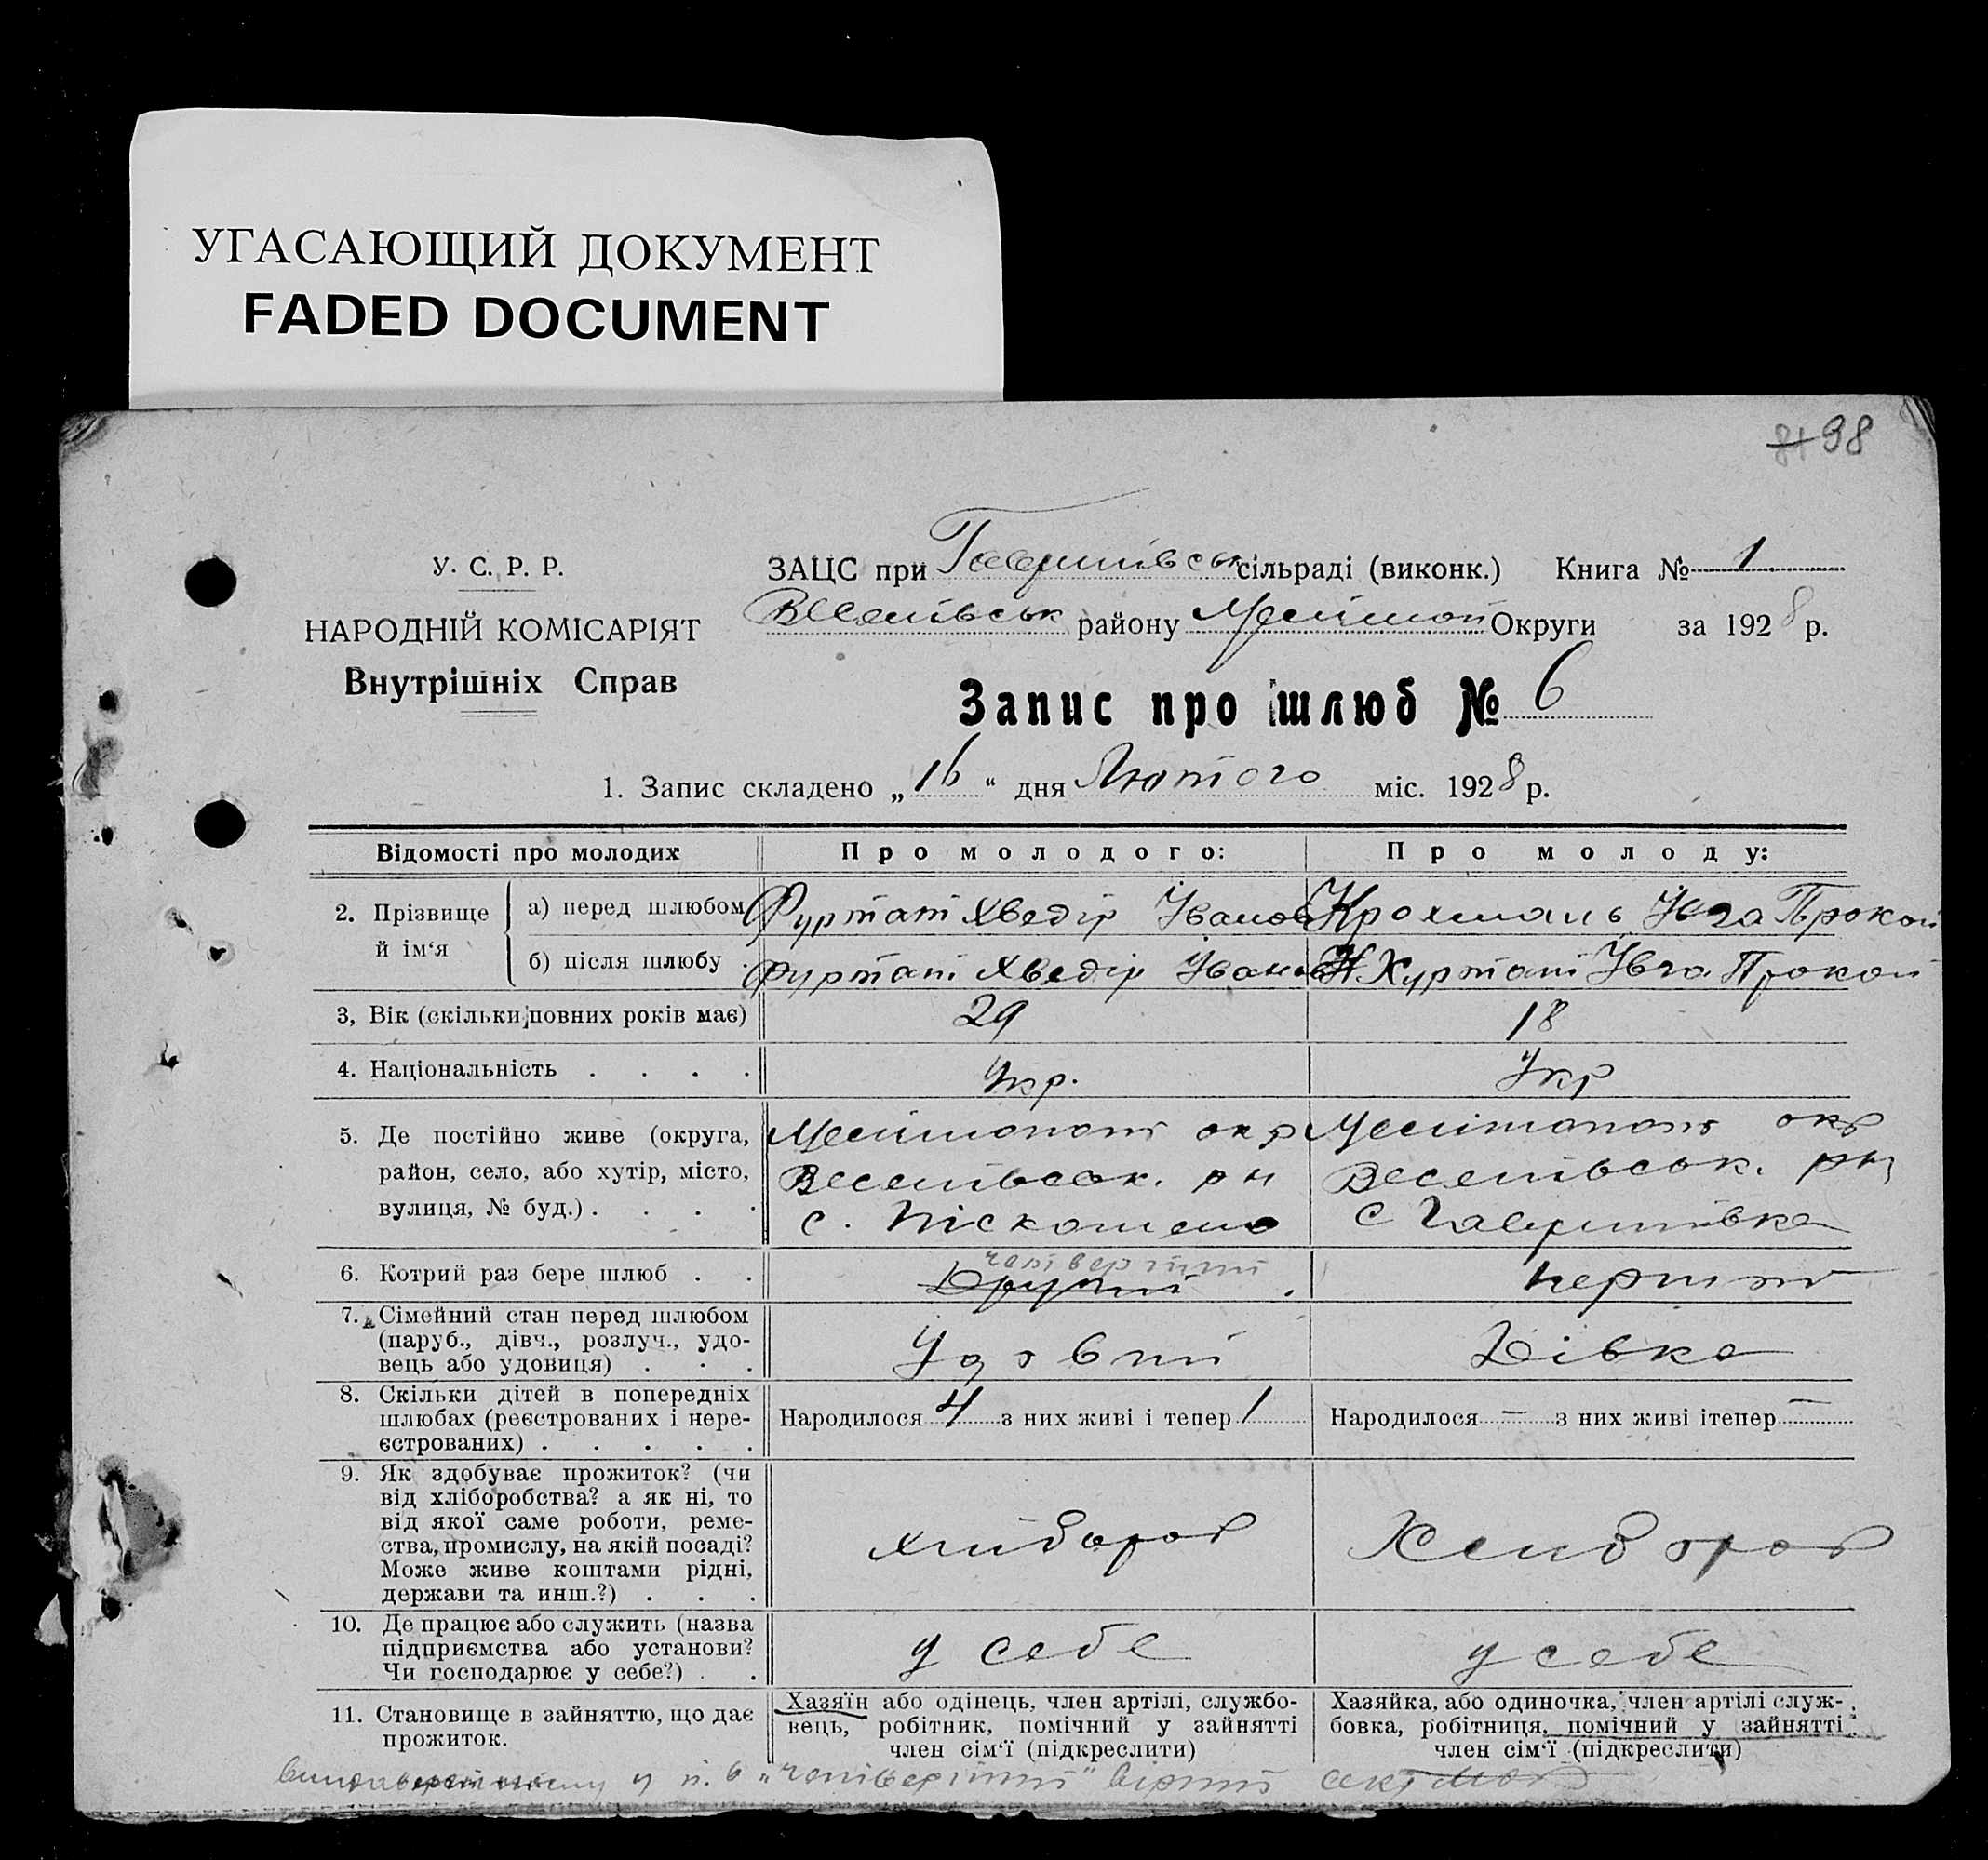 УГАСАЮЩИЙ ДОКУМЕНТ
FADED DOCUMENT
98
У. С. Р. Р.
НАРОДНІЙ КОМІСАРІЯТ
Внутрішніх Справ
ЗАЦС при Гаврилівськ сільраді (виконк.) Книга № 1
Веселівськ району Меліτοп Округи за 1928 р.
Запис про шлюб № 6
1. Запис складено „16“ дня Лютого міс. 1928 р.
Відомості про молодих
Про молодого:
Про молоду:
2. Прізвище й ім‘я
а) перед шлюбом
Фуртат Хведір Іванов
Крохмаль Ївга Прокоп
б) після шлюбу
Фуртат Хведір Іванов
Хуртат Ївга Прокоп
3, Вік (скільки повних років має)
29
18
4. Національність . . . .
Укр.
Укр
5. Де постійно живе (округа,
район, село, або хутір, місто,
вулиця, № буд.) . . . .
Мелітополь окр
Веселівськ. рн
с. Піскошино
Мелітополь окр
Веселівськ. рн
с Гаврилівка
6. Котрий раз бере шлюб . .
четвертий
Другий
перший
7. Сімейний стан перед шлюбом
(паруб., дівч., розлуч., удо-
вець або удовиця) . . .
Удовий
Дівка
8. Скільки дітей в попередніх
шлюбах (реєстрованих і нере-
єстрованих) . . . . .
Народилося 4 з них живі і тепер 1
Народилося — з них живі ітепер —
9. Як здобуває прожиток? (чи
від хліборобства? а як ні, то
від якої саме роботи, реме-
ства, промислу, на якій посаді?
Може живе коштами рідні,
держави та инш.?) . . .
хлібороб
Хлібороб
10. Де працює або служить (назва
підприємства або установи?
Чи господарює у себе?) . .
у себе
у себе
11. Становище в зайняттю, що дає
прожиток.
Хазяїн або одінець, член артілі, службо-
вець, робітник, помічний у зайнятті
член сім‘ї (підкреслити)
Хазяйка, або одиночка, член артілі служ-
бовка, робітниця, помічний у зайнятті
член сім‘ї (підкреслити)
у п. 6 „четвертий" вірити